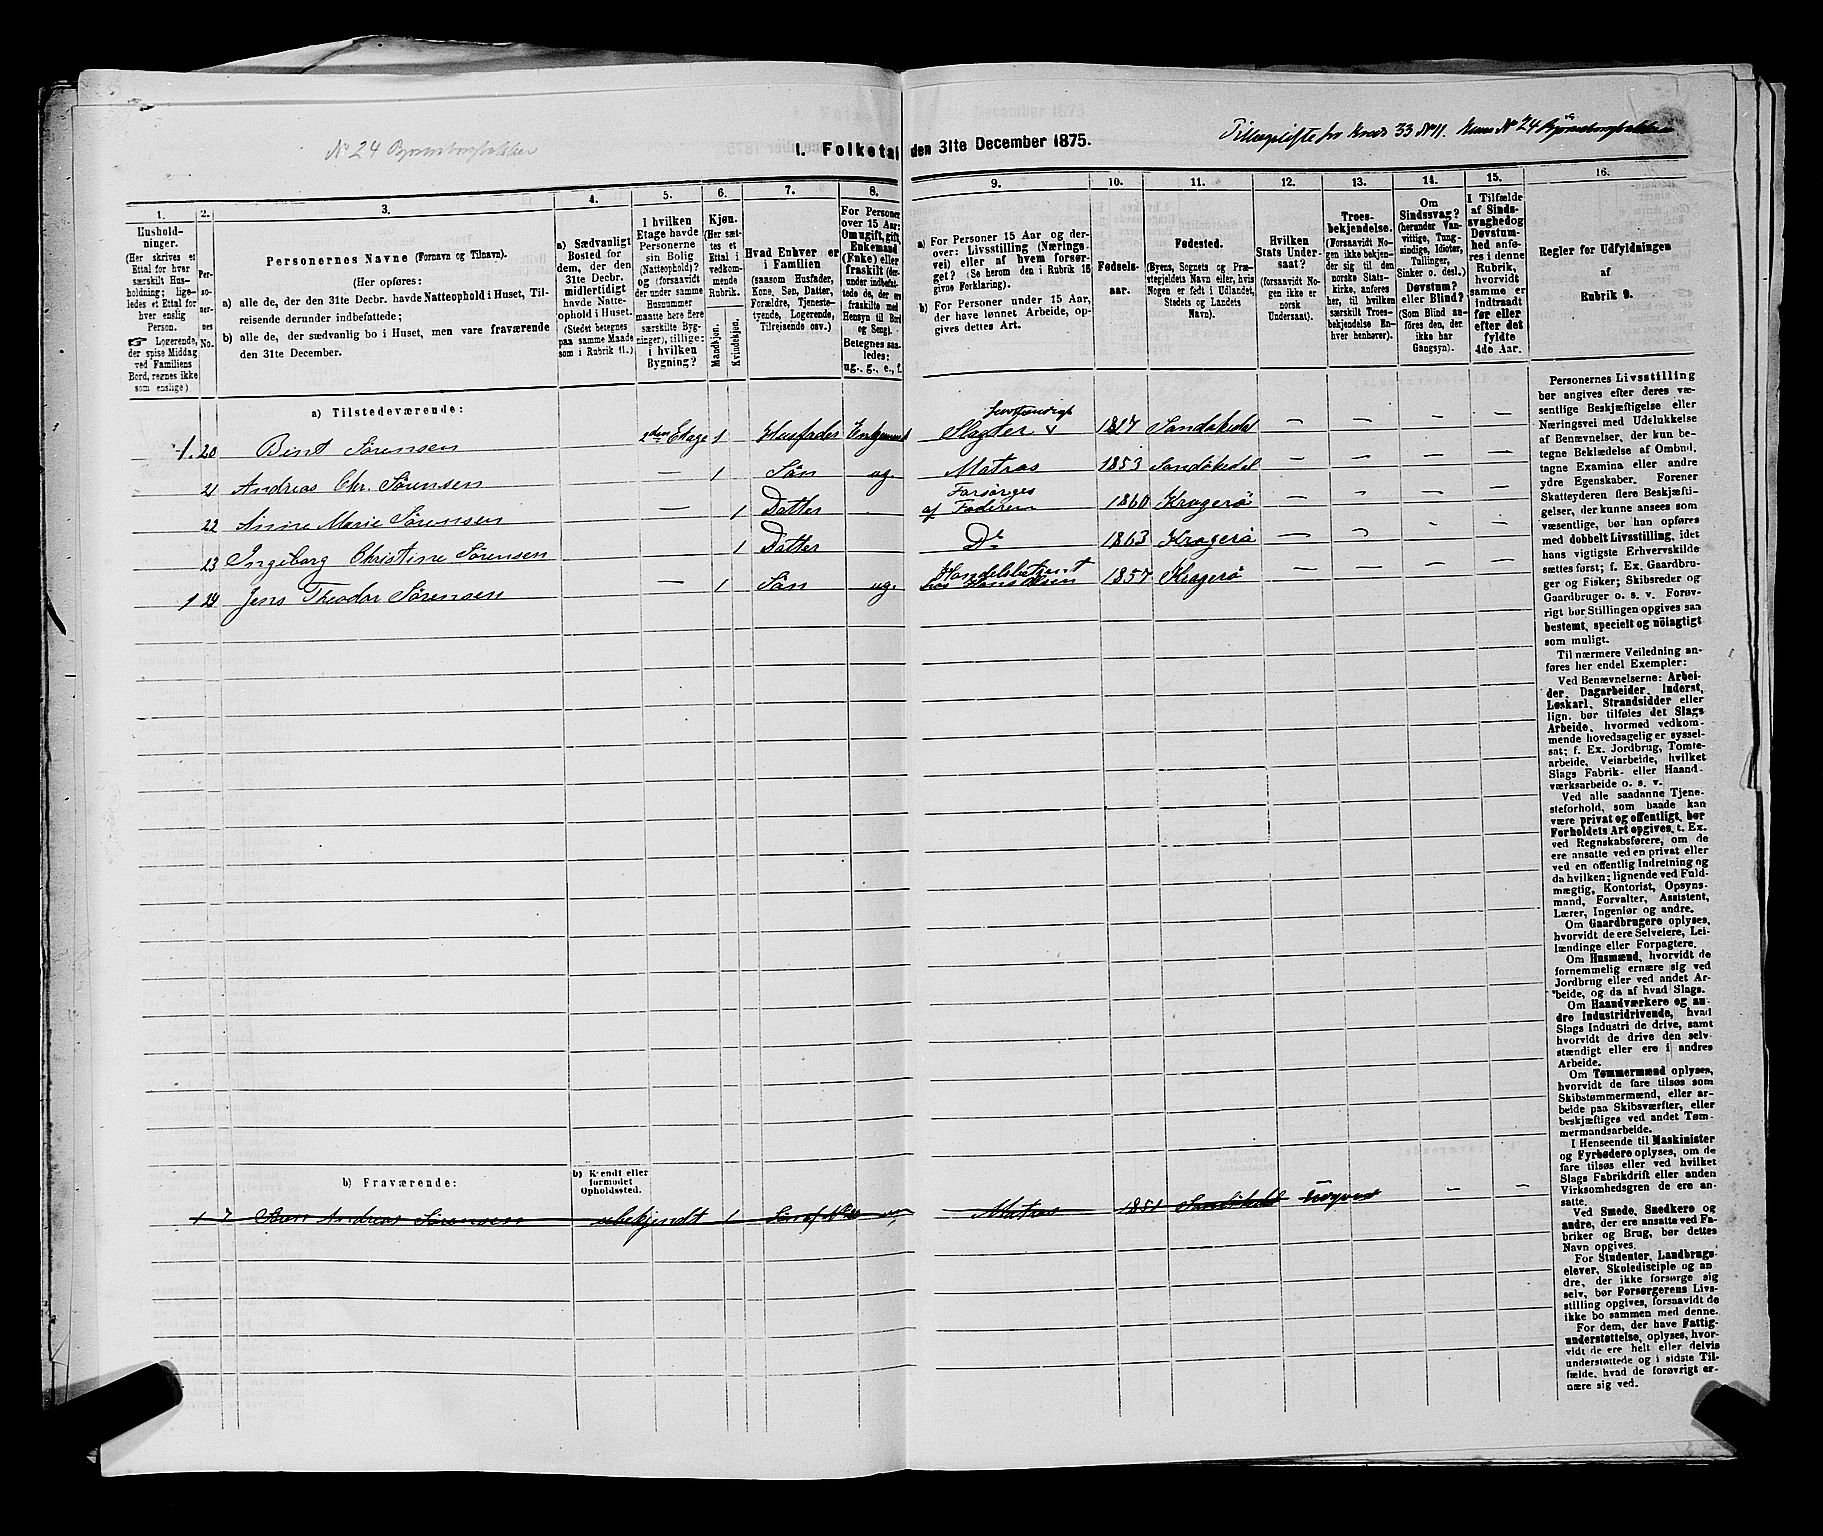 Nº 24 Bjørnsborgbakken
I. Folketal den 31te December 1875.
Tillægsliste fra Kreds 33 Nº 11. Huus Nº 24 Bjørnsborgbakken
1.
Husholdninger.
(Her skrives et Ettal for hver særskilt Husholdning; ligeledes et Ettal for hver enslig Person.
☞ Logerende, der spise Middag ved Familiens Bord, regnes ikke som enslige).
2.
Personernes No.
3.
Personernes Navne (Fornavn og Tilnavn).
(Her opføres:
a) alle de, der den 31te Decbr. havde Natteophold i Huset, Tilreisende derunder indbefattede;
b) alle de, der sædvanlig bo i Huset, men vare fraværende den 31te December.
4.
a) Sædvanligt Bosted for dem, der den 31te Decbr. midlertidigt havde Natteophold i Huset.
(Stedet betegnes paa samme Maade som i Rubrik 11.)
5.
I hvilken Etage havde Personerne sin Bolig (Natteophold)? og (forsaavidt der under samme Husnummer maatte høre flere særskilte Bygninger), tillige: i hvilken Bygning?
6.
Kjøn.
(Her sættes et Ettal i vedkommende Rubrik.
Mandkjøn.
Kvindekjøn.
7.
Hvad Enhver er i Familien
(saasom Husfader, Kone, Søn, Datter, Forældre, Tjenestetyende, Logerende, Tilreisende osv.)
8.
For Personer over 15 Aar: Om ugift, gift, Enkemand (Enke) eller fraskilt (derunder indbefattede de, der ere fraskilte med Hensyn til Bord og Seng).
Betegnes saaledes:
ug., g., e., f.
9.
a) For Personer 15 Aar og derover: Livsstilling (Næringsvei) eller af hvem forsørget? (Se herom den i Rubrik 16 givne Forklaring).
b) For Personer under 15 Aar, der have lønnet Arbeide, opgives dettes Art.
10.
Fødselsaar.
11.
Fødested.
(Byens, Sognets og Præstegjeldets Navn eller, hvis Nogen er født i Udlandet, Stedets og Landets Navn).
12.
Hvilken Stats Undersaat?
(forsaavidt Nogen ikke er norsk Undersaat).
13.
Troesbekjendelse.
(Forsaavidt Nogen ikke bekjender sig til den norske Statskirke, anføres her, til hvilken særskilt Troesbekjendelse Enhver henhører).
14.
Om Sindssvag? (herunder Vanvittige, Tungsindige, Idioter, Tullinger, Sinker o. desl.)
Døvstum? eller Blind?
(Som Blind anføres den, der ikke har Gangsyn).
15.
I Tilfælde af Sindssvaghed og Døvstumhed anføres i denne Rubrik, hvorvidt samme er indtraadt før eller efter det fyldte 4de Aar.
16.
Regler for Udfyldningen
af
Rubrik 9.
a) Tilstedeværende:
1. 20 Bent Sørensen 2den Etage 1 Husfader Enkemand Slagter selvstændigt 1827 Sandøkedal — — — —
21 Andreas Chr. Sørensen — 1 Søn ug. Matros 1853 Sandøkedel — — — —
22 Anne Marie Sørensen 1 Datter Forsørges af Faderen 1860 Kragerø — — — —
23 Ingeborg Christine Sørensen 1 Datter Dº 1863 Kragerø — — — —
1 24 Jens Theodor Sørensen — 1 Søn ug Handelsbetjent hos Hans Olsen 1857 Kragerø — — — —
b) Fraværende:
b) Kjendt eller formodet Opholdssted.
1 7 Søren Andreas Sørensen ubekjendt 1 Søn af Nº 20 ug. Matros 1851 Sandøkedal — —
Personernes Livsstilling
bør angives efter deres væ-
sentlige Beskjæftigelse eller
Næringsvei med Udelukkelse
af Benævnelser, der kun be-
tegne Beklædelse af Ombud,
tagne Examina eller andre
ydre Egenskaber. Forener
Skatteyderen flere Beskjæfti-
gelser, der kunne ansees som
væsentlige, bør han opføres
med dobbelt Livsstilling, idet
hans vigtigste Erhvervskilde
sættes først; f. Ex. Gaardbru-
ger og Fisker; Skibsreder og
Gaardbruger o. s. v. Forøv-
rigt bør Stillingen opgives saa
bestemt, specielt og nöiagtigt
som muligt.
Til nærmere Veiledning an-
føres her endel Exempler:
Ved Benævnelserne: Arbei-
der, Dagarbeider, Inderst,
Løskarl, Strandsidder eller
lign. bør tilføies det Slags
Arbeide, hvormed vedkom-
mende hovedsagelig er syssel-
sat; f. Ex. Jordbrug, Tomte-
arbeide, Veiarbeide, hvilket
Slags Fabrik- eller Haand-
værksarbeide o. s. v.
Ved alle saadanne Tjene-
steforhold, som baade kan
være privat og offentligt, bør
Forholdets Art opgives, t. Ex.
ved Regnskabsførere, om de
ere ansatte ved en privat eller
ved en offentlig Indretning og
da hvilken; lignende ved Fuld-
mægtig, Kontorist, Opsyns-
mand, Forvalter, Assistent,
Lærer, Ingeniør og andre.
Om Gaardbrugere oplyses,
hvorvidt de ere Selveiere, Lei-
lændinge eller Forpagtere.
Om Husmænd, hvorvidt de
fornemmelig ernære sig ved
Jordbrug eller ved andet Ar-
beide, og da af hvad Slags.
Om Haandværkere og an-
dre Industridrivende, hvad
Slags Industri de drive, samt
hvorvidt de drive den selv-
stændigt eller ere i andres
Arbeide.
Om Tømmermænd oplyses,
hvorvidt de fare tilsøs som
Skibstømmermænd, eller ar-
beide paa Skibsværfter, eller
beskjæftiges ved andet Tøm-
mermandsarbeide.
I Henseende til Maskinister
og Fyrbødere oplyses, om de
fare tilsøs eller ved hvilket
Slags Fabrikdrift eller anden
Virksomhedsgren de ere an-
satte.
Ved Smede, Snedkere og
andre, der ere ansatte ved Fa-
briker og Brug, bør dettes
Navn opgives.
For Studenter, Landbrugs-
elever, Skoledisciple og an-
dre, der ikke forsørge sig
selv, bør Forsørgerens Livs-
stilling opgives, forsaavidt de
ikke bo sammen med denne.
For dem, der have Fattig-
understøttelse, oplyses, hvor-
vidt de ere helt eller delvis
understøttede og i sidste Til-
fælde, hvad de forøvrigt er-
nære sig ved.